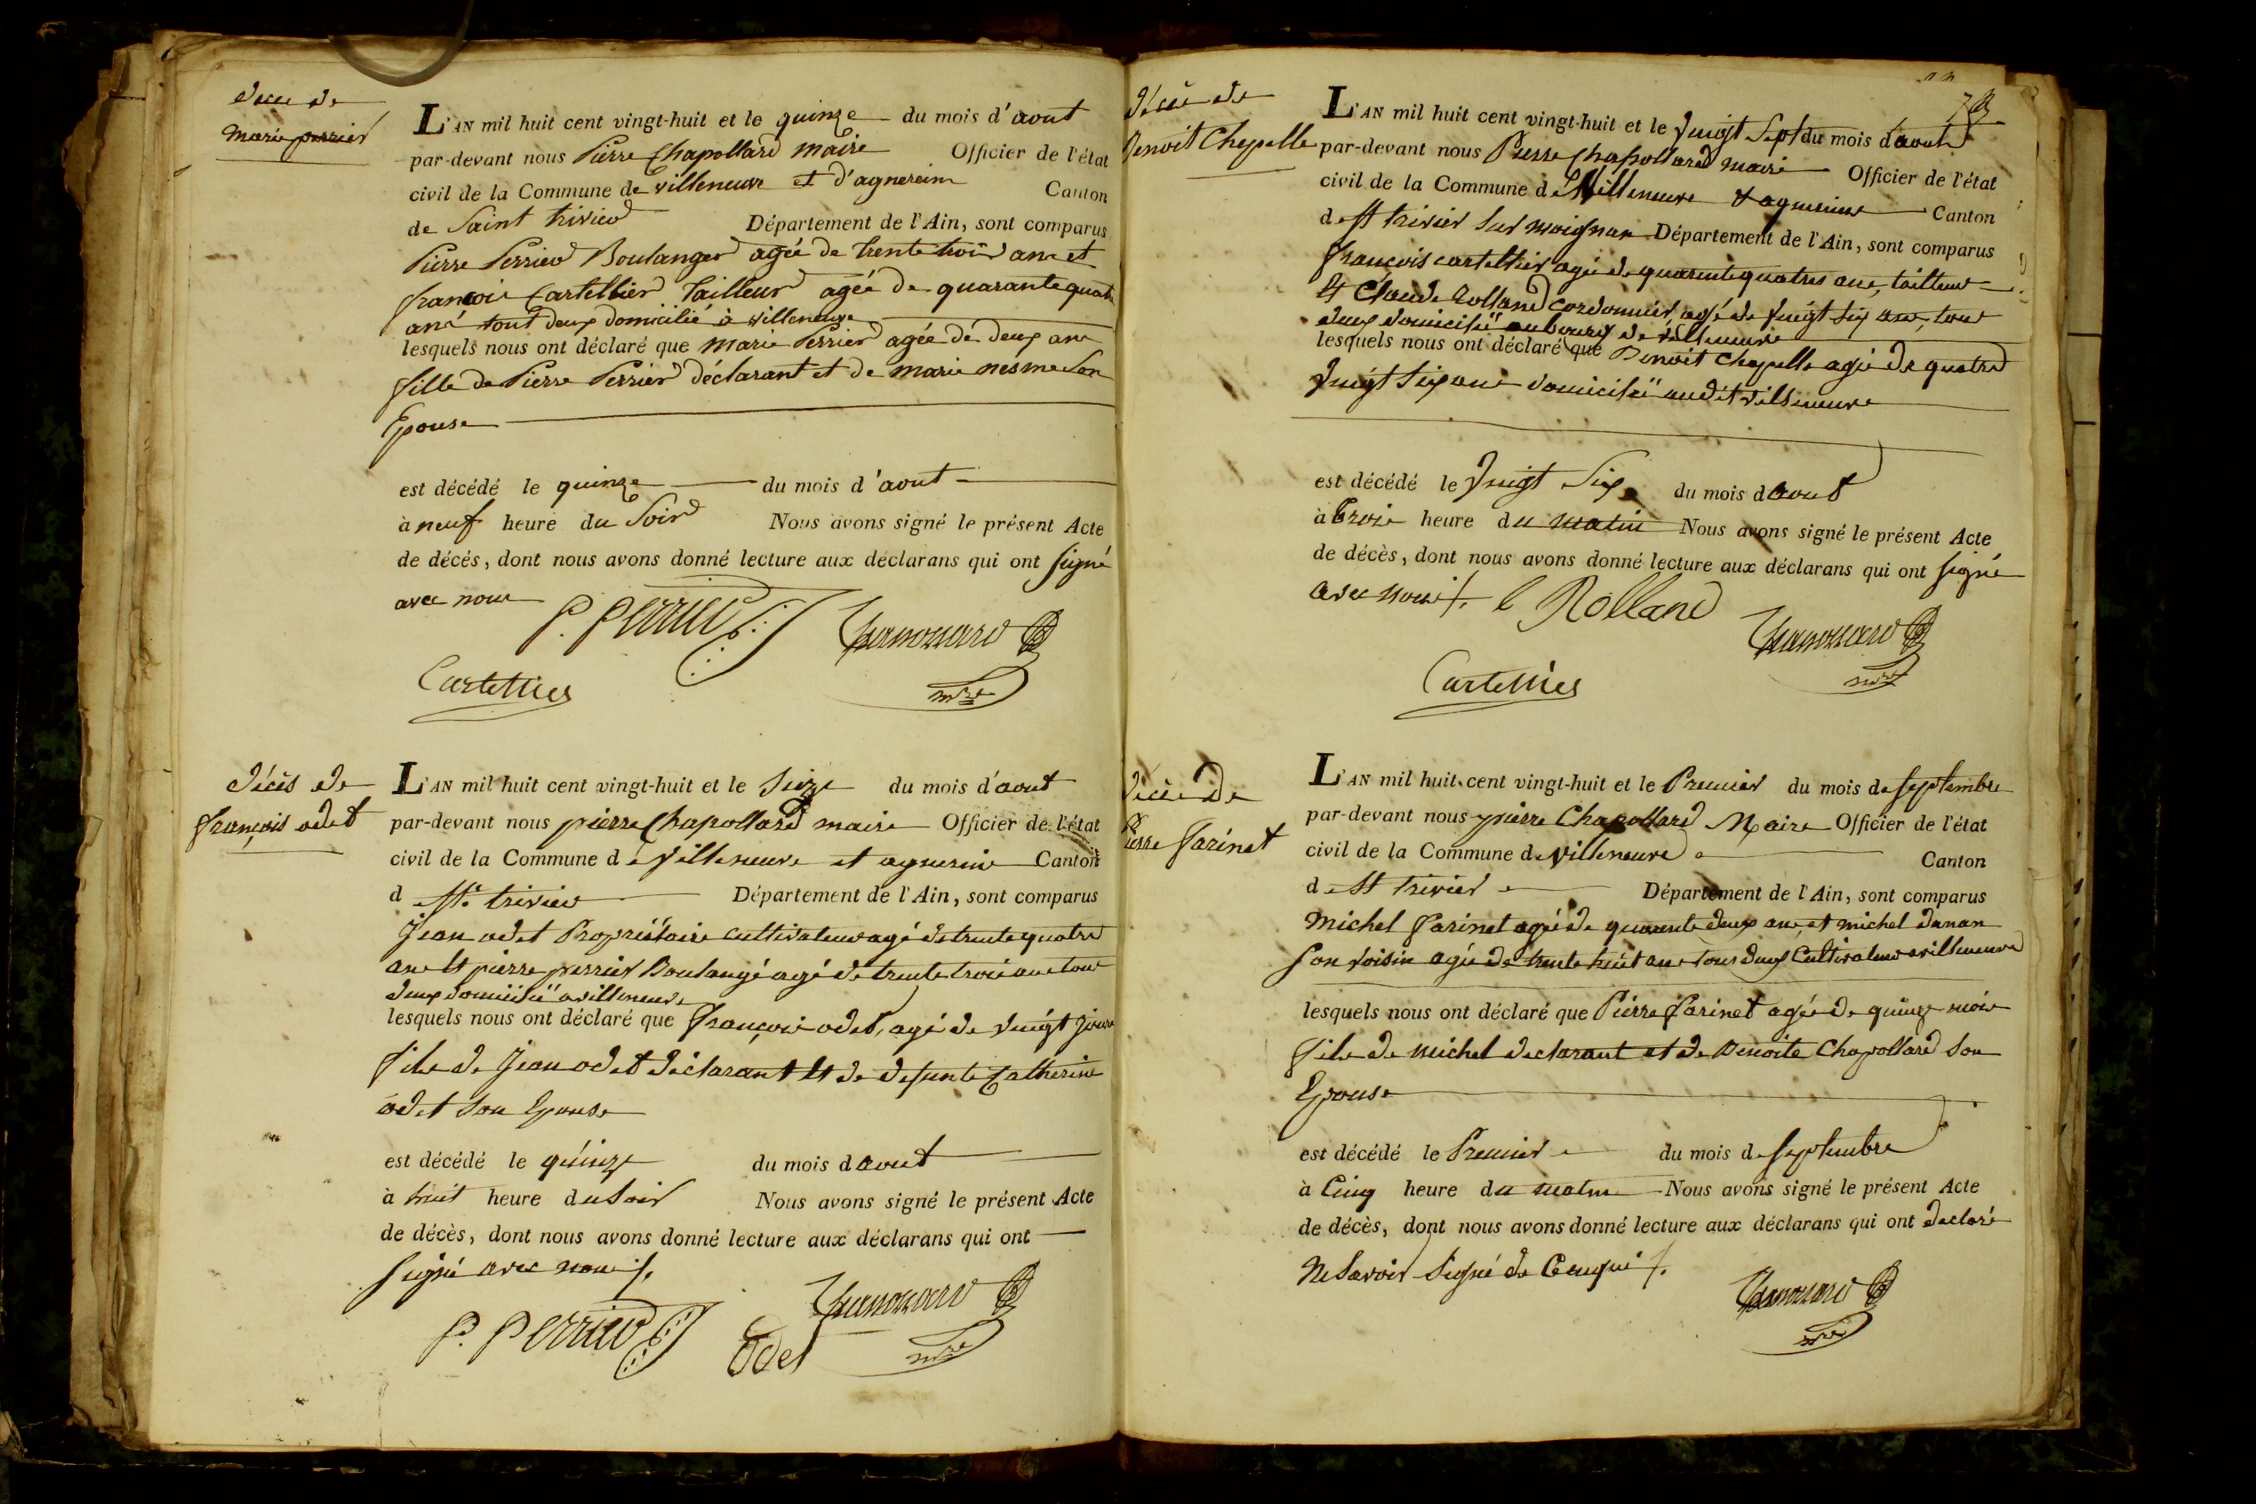 décè de
marie perrier
L'AN mil huit cent vingt-huit et le quinze du mois d'aout
par-devant nous Pierre Chapollard maire Officier de l'état
civil de la Commune de villeneuve et d'agnereim Canton
de Saint trivier Département de l'Ain, sont comparus
Pierre Perrier Boulanger agée de trente trois ans et
françois Cartellier tailleur agée de quarante quatre
ans tout deux domicilié à villeneuve
lesquels nous ont déclaré que marie Perrier agée de deux ans
fille de Pierre Perrier déclarant et de marie nesme Son
Epouse
est décédé le quinze du mois d'aout
à neuf heure du Soir Nous avons signé le présent Acte
de décès, dont nous avons donné lecture aux déclarans qui ont signé
avec nous
P. Perrier
Cartellier
mre
décès de
françois odet
L'AN mil huit cent vingt-huit et le Seize du mois d'aout
par-devant nous pierre Chapollard maire Officier de l'état
civil de la Commune de villeneuve et agnerein Canton
d St. trivier Département de l'Ain, sont comparus
Jean odet Propriétaire cultivateur agé de trente quatre
ans Et pierre perrier Boulangé agé de trente trois ans tous
deux domicilié a villeneuve
lesquels nous ont déclaré que françois odet, agé de vingt jours
fils de Jean odet déclarant Et de defunte Catherine
odet Son Epouse
est décédé le quinze du mois d aout
à huit heure du Soir Nous avons signé le présent Acte
de décès, dont nous avons donné lecture aux déclarans qui ont
signé avec nous
P. Perrier
Odet
mre
78
décès de
Benoit Chapelle
L'AN mil huit cent vingt-huit et le vingt Sept du mois d aout
par-devant nous Pierre Chapollard maire Officier de l'état
civil de la Commune de Villeneuve & agnerein Canton
de St trivier Sur moignan Département de l'Ain, sont comparus
françois cartellier agé de quarente quatres ans, tailleur
Et Claude Rolland cordonnier, agé de vingt six ans, tous
deux domicilié au bourg de villeneuve
lesquels nous ont déclaré que Benoit Chapelle agé de quatre
vingt six ans domicilié audit villeneuve
est décédé le vingt Six du mois d aout
à trois heure du matin Nous avons signé le présent Acte
de décès, dont nous avons donné lecture aux déclarans qui ont signé
avec nous
C Rolland
Cartellier
mre
décès de
Pierre Farinet
L'AN mil huit cent vingt-huit et le Premier du mois de septembre
par-devant nous pierre Chapollard Maire Officier de l'état
civil de la Commune de villeneuve Canton
de St trivier Département de l'Ain, sont comparus
Michel Farinet agé de quarente deux ans, et michel danan
Son voisin agé de trente huit ans tous deux Cultivateur a villeneuve
lesquels nous ont déclaré que Pierre Farinet agé de quinze mois
fils de michel declarant et de Benoite Chapollard Son
Epouse
est décédé le Premier du mois de septembre
à Cinq heure du matin Nous avons signé le présent Acte
de décès, dont nous avons donné lecture aux déclarans qui ont declaré
Ne Savoir Signé de Ce enqui
mre